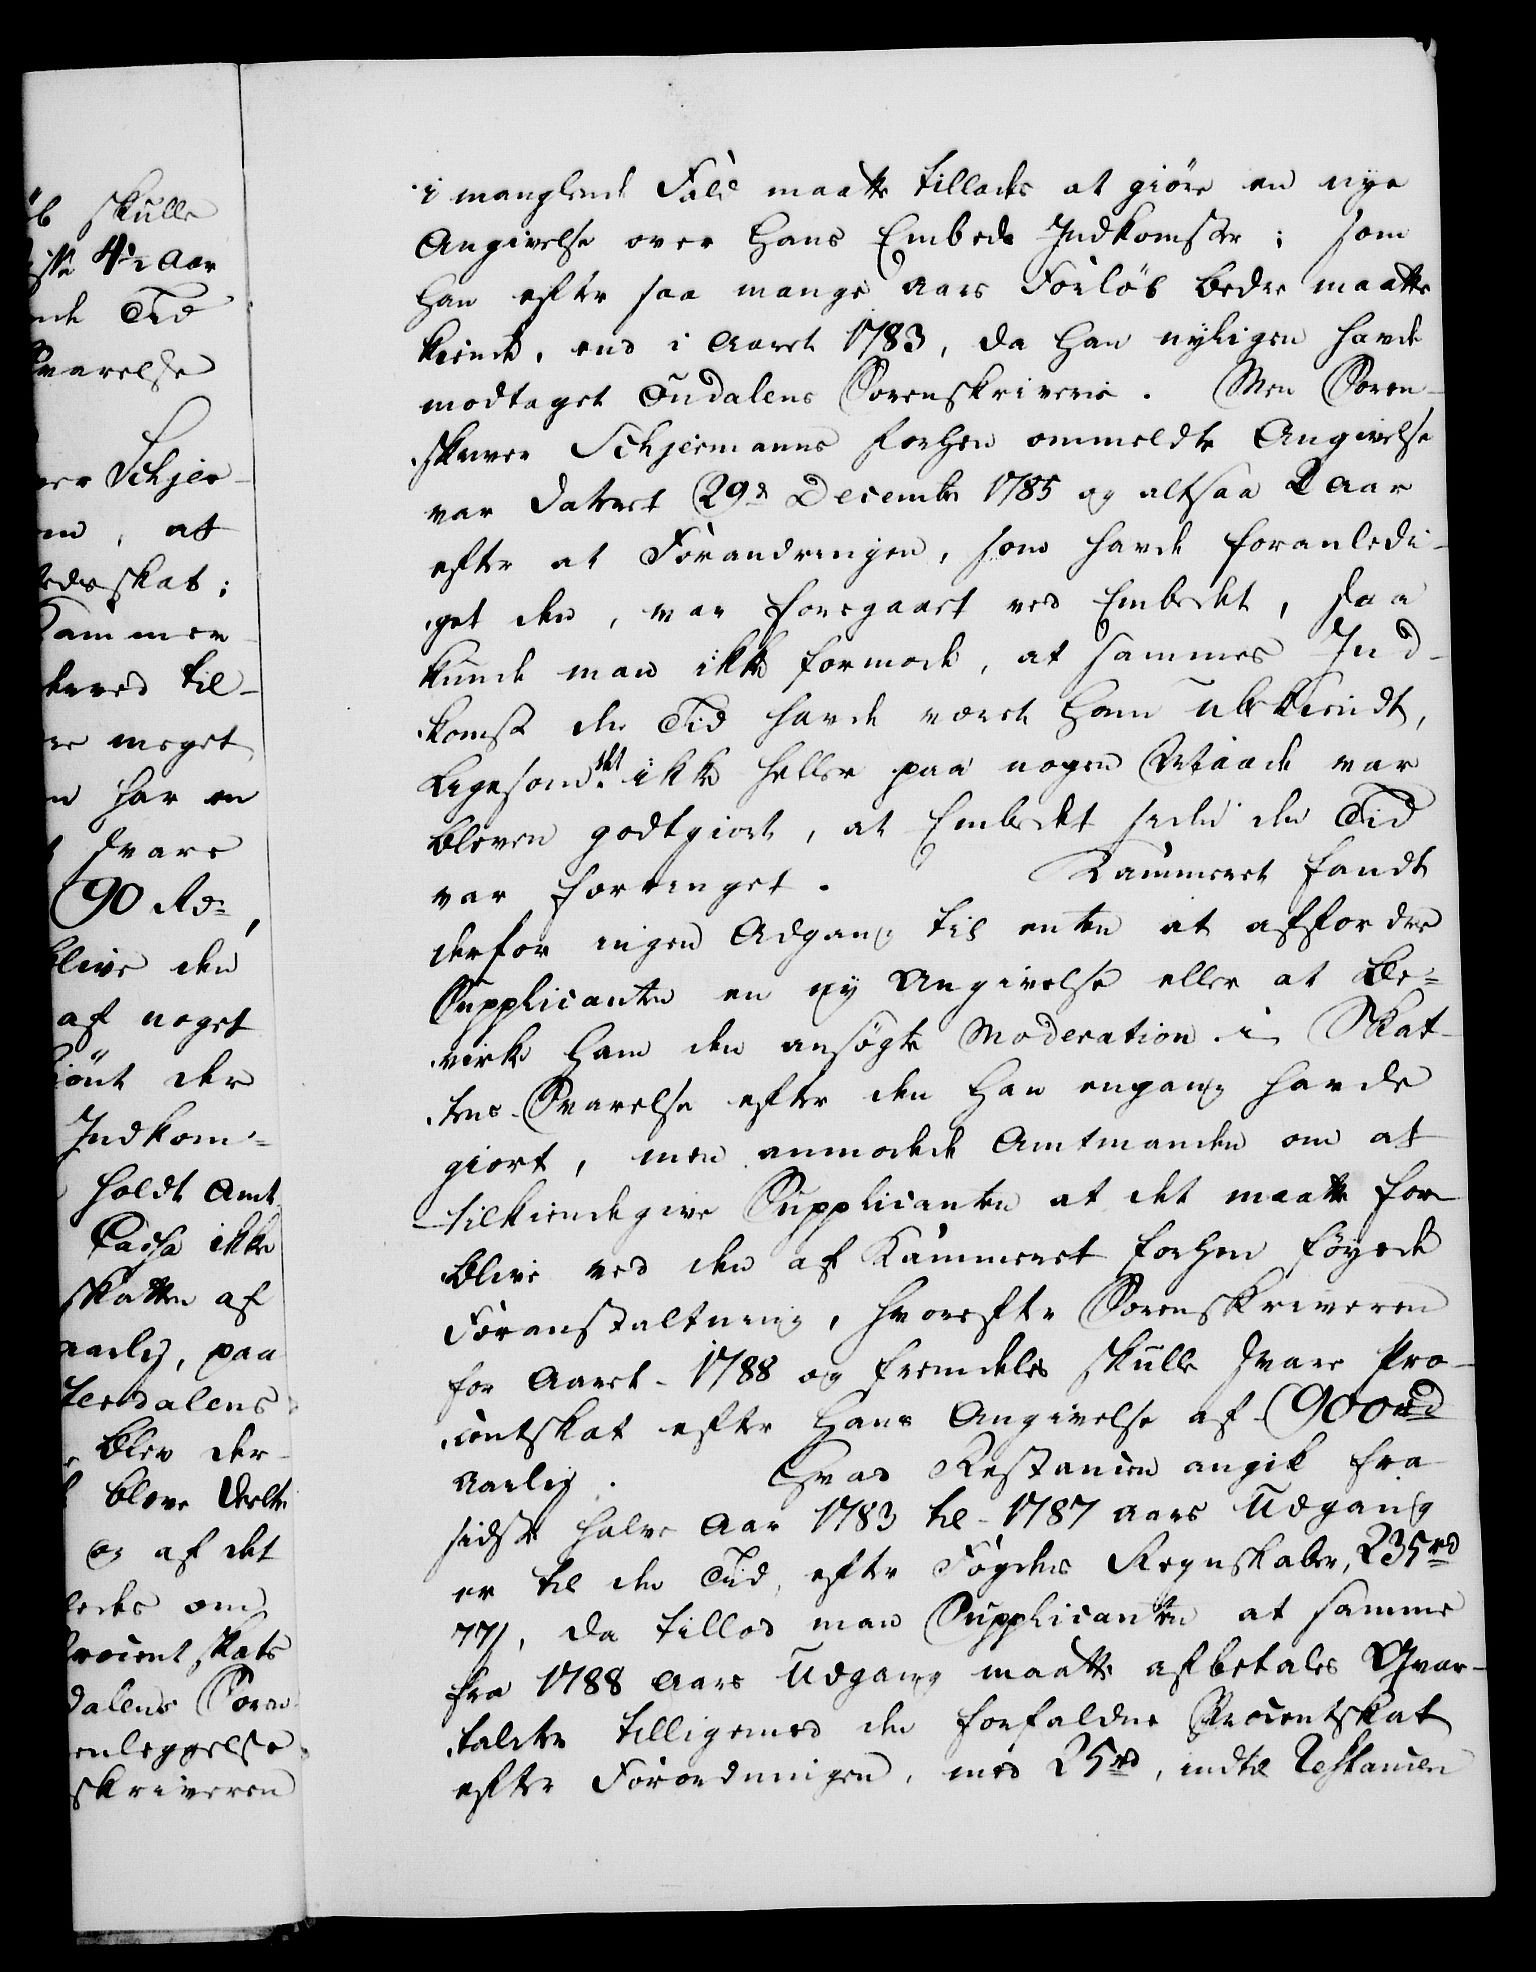 öb skulle
sidste 4 1/2 Aar
nde Tid
Svarelse
ver Schjer-
em, at
hedsskat;
Kammer
derved til-
re meget
n har en
t svare
90 Rdr,
blive den
af noget
kiönt der
Indkom-
holdt Amt
Cassa ikke
skatten af
aarlig, paa
terdalens
blev der-
blove deelte
og af det
ledes om
Procentskats
dalens Soren
enleggelse
skriveren
i manglende Fald maatte tillades at giöre en nye
Angivelse over hans Embeds Indkomster; som
han efter saa mange Aars Forlöb bedre maatte
kiende, end i Aaret 1783, da han nyligen havde
modtaget Guddalens Sorenskriverie. Men Soren-
skriver Schjermanns forhen ommeldte Angivelse
var dateret 29de Decembr 1785 og altsaa 2 Aar
efter at Forandringen, som havde foranledi-
get den, var foregaaet ved Embedet, saa
kunde man ikke formode, at sammes Ind-
komst den Tid havde været ham ubekiendt,
ligesom det ikke heller paa nogen Maade var
bleven godtgiort, at Embedet siden den Tid
var forringet. Kammeret fandt
derfor ingen Adgang til enten at affordre
Supplicanten en ny Angivelse eller at be-
virke ham den ansögte Moderation i Skat-
tens Svarelse efter den han engang havde
giort, men anmodede Amtmanden om at
tilkiendegive Supplicanten at det maatte for
blive ved den af Kammeret forhen föyede
Foranstaltning, hvorefter Sorenskriveren
for Aaret 1788 og fremdeles skulle svare Pro-
centskat efter hans Angivelse af 900 rd
Aarlig. Hvad Restancen angik fra
sidste halve Aar 1783 til 1787 Aars Udgang
er til den Tid, efter Fogdens Regnskaber, 235 rd
77 s, da tillod man Supplicanten at samme
fra 1788 Aars Udgang maatte afbetales Qvar-
taliter tilligemed den forfaldne Procentskat
efter Forordningen, med 25 rd, indtil Restancen